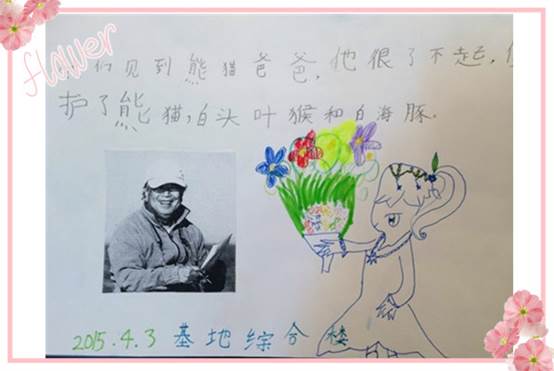 flower
们见到熊猫爸爸，他很了不起，
护了熊猫，白头叶猴和白海豚。
2015.4.3 基地综合楼